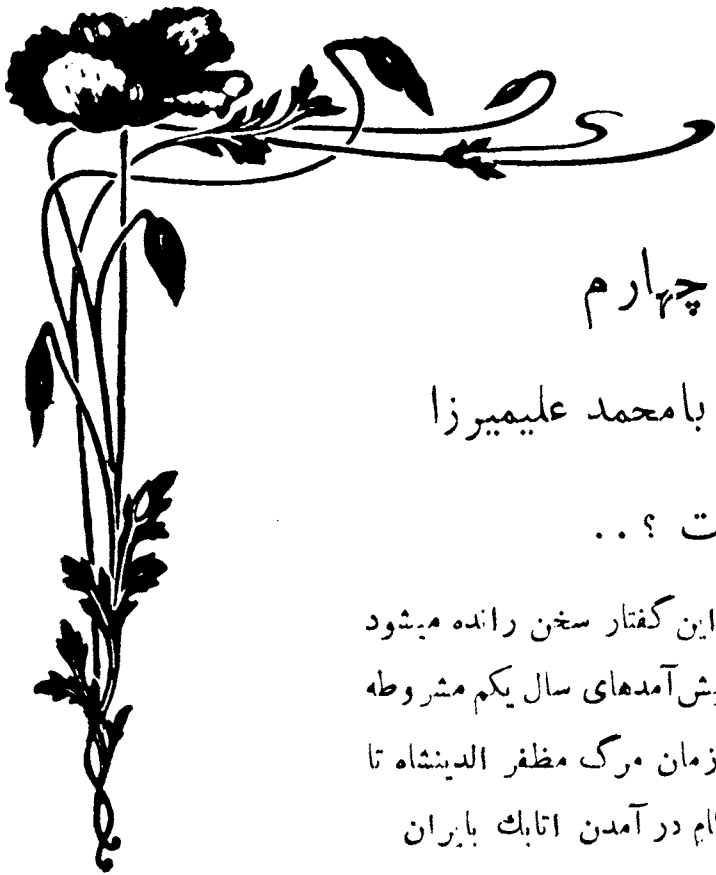 چهارم
بامحمد علیمیرزا
ت ؟ . .
این گفتار سخن رانده میشود
ش آمدهای سال یکم مشروطه
زمان مرگ مظفر الدینشاه تا
در آمدن اتابك بایران